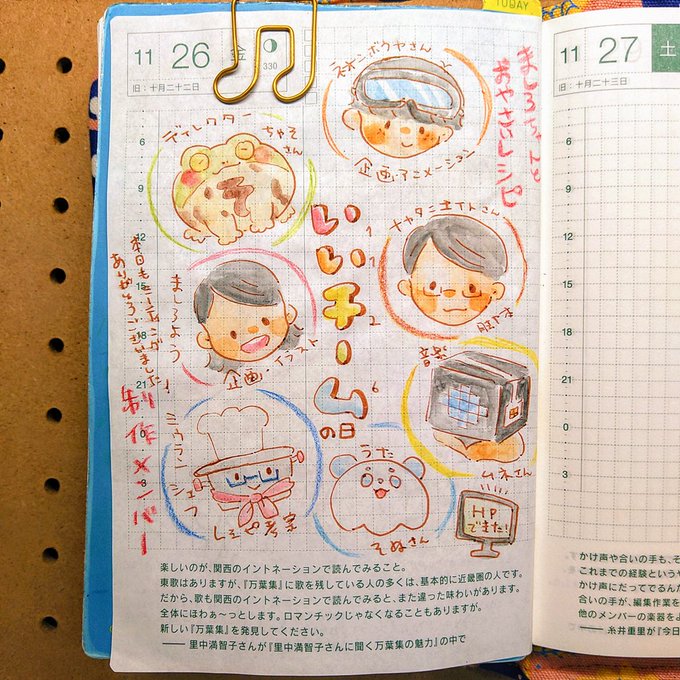 TODAY
11
26
金
330
旧：十月二十二日
6
9
12
15
18
21
0
3
ましろちゃんと
おやさいレシピ
ネオンボウヤさん
企画・アニメーション
ディレクター
ちゃそ
さん
いいチームの日
11
2
6
さん
ましろよう！
企画・イラスト
本日もミーティング
ありがとうございました
制作メンバー
音楽
ムネさん
シェフ
レシピ考案
うた
そぬさん
HP
できた！
楽しいのが、関西のイントネーションで読んでみること。
東歌はありますが、『万葉集』に歌を残している人の多くは、基本的に近畿圏の人です。
だから、歌も関西のイントネーションで読んでみると、また違った味わいがあります。
全体にほわぁ〜っとします。ロマンチックじゃなくなることもありますが。
新しい『万葉集』を発見してください。
──里中満智子さんが『里中満智子さんに聞く万葉集の魅力』の中で
11
27
土
旧：十月二十三日
6
9
12
15
18
21
0
3
かけ声や合いの手も、そ
これまでの経験という
かけ声にだってでるんだ
合いの手が、編集作業を
他のメンバーの楽器をよ
──糸井重里が『今日